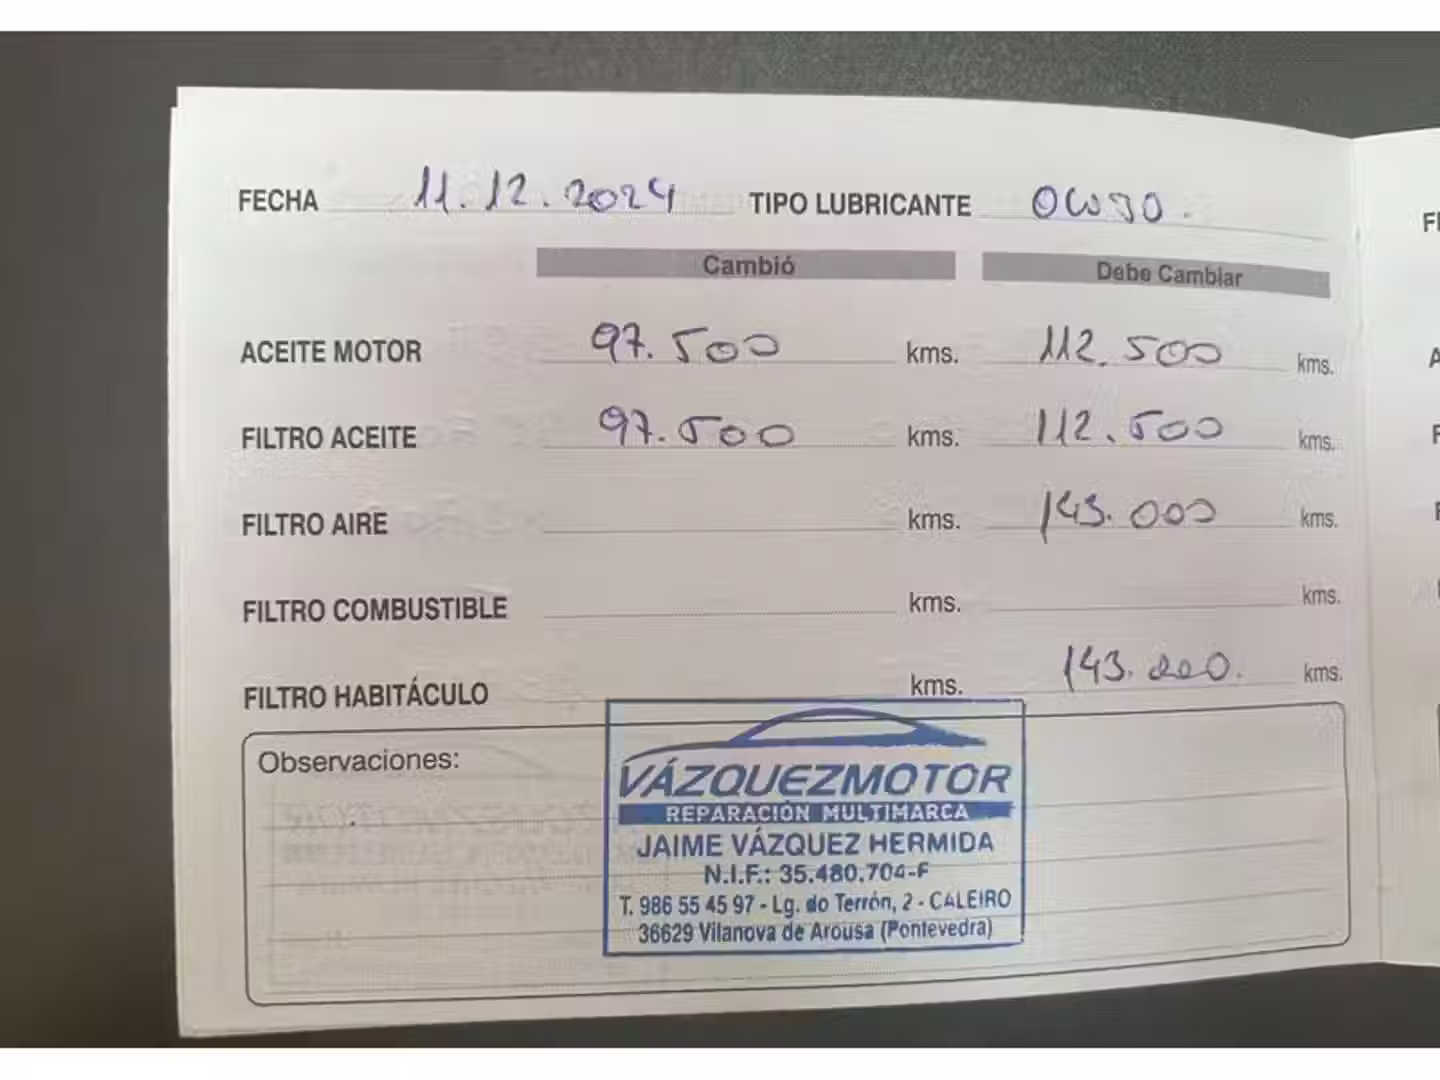 FECHA 11.12.2024 TIPO LUBRICANTE 0W30.
Cambió Debe Cambiar
ACEITE MOTOR 97.500 kms. 112.500 kms.
FILTRO ACEITE 97.500 kms. 112.500 kms.
FILTRO AIRE kms. 143.000 kms.
FILTRO COMBUSTIBLE kms. kms.
FILTRO HABITÁCULO kms. 143.000. kms.
Observaciones:
VÁZQUEZMOTOR
REPARACIÓN MULTIMARCA
JAIME VÁZQUEZ HERMIDA
N.I.F.: 35.480.704-F
T. 986 55 45 97 - Lg. do Terrón, 2 - CALEIRO
36629 Vilanova de Arousa (Pontevedra)